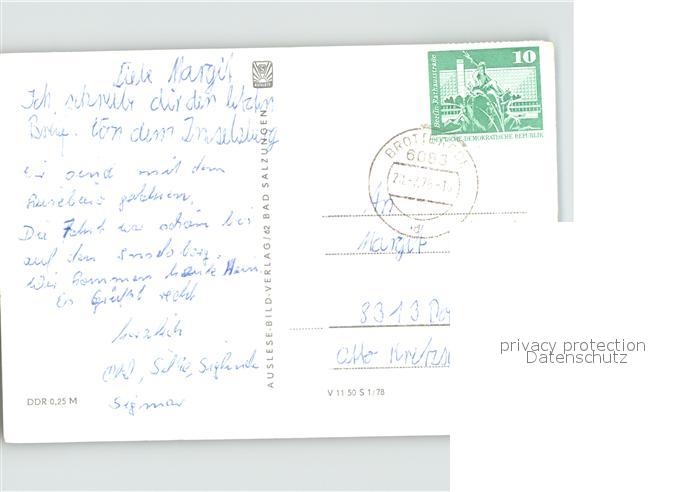 Liebe Margit
Ich schreibe dir den letzten
Brief. Von dem Inselsberg
Wir sind mit dem
gefahren.
Die Fahrt war schön bis
auf den Inselsberg.
Wir kommen heute Heim.
Es Grüßt recht
herzlich
Silke, Sieglinde
Sigmar
DDR 0,25 M
AUSLESE-BILD-VERLAG/62 BAD SALZUNGEN
V 11 50 S 1/78
10
Berlin-Rathausstraße
DEUTSCHE DEMOKRATISCHE REPUBLIK
6083
An
Margit
8313 Do
Otto Kretzs
privacy protection
Datenschutz